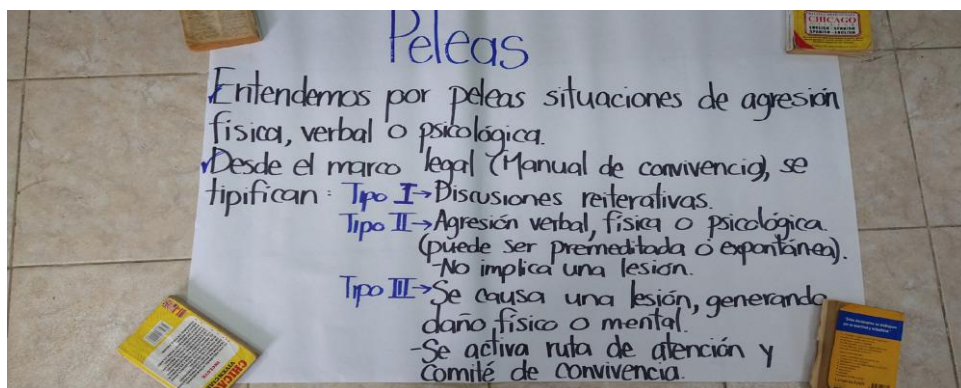 Peleas
Entendemos por peleas situaciones de agresión
física, verbal o psicológica.
Desde el marco legal (Manual de convivencia), se
tipifican: Tipo I→Discusiones reiterativas.
Tipo II→Agresión verbal, física o psicológica.
(puede ser premeditada o expontánea).
-No implica una lesión.
Tipo III→Se causa una lesión, generando
daño físico o mental.
-Se activa ruta de atención y
Comité de convivencia.
CHICAGO
ENGLISH - SPANISH
SPANISH - ENGLISH